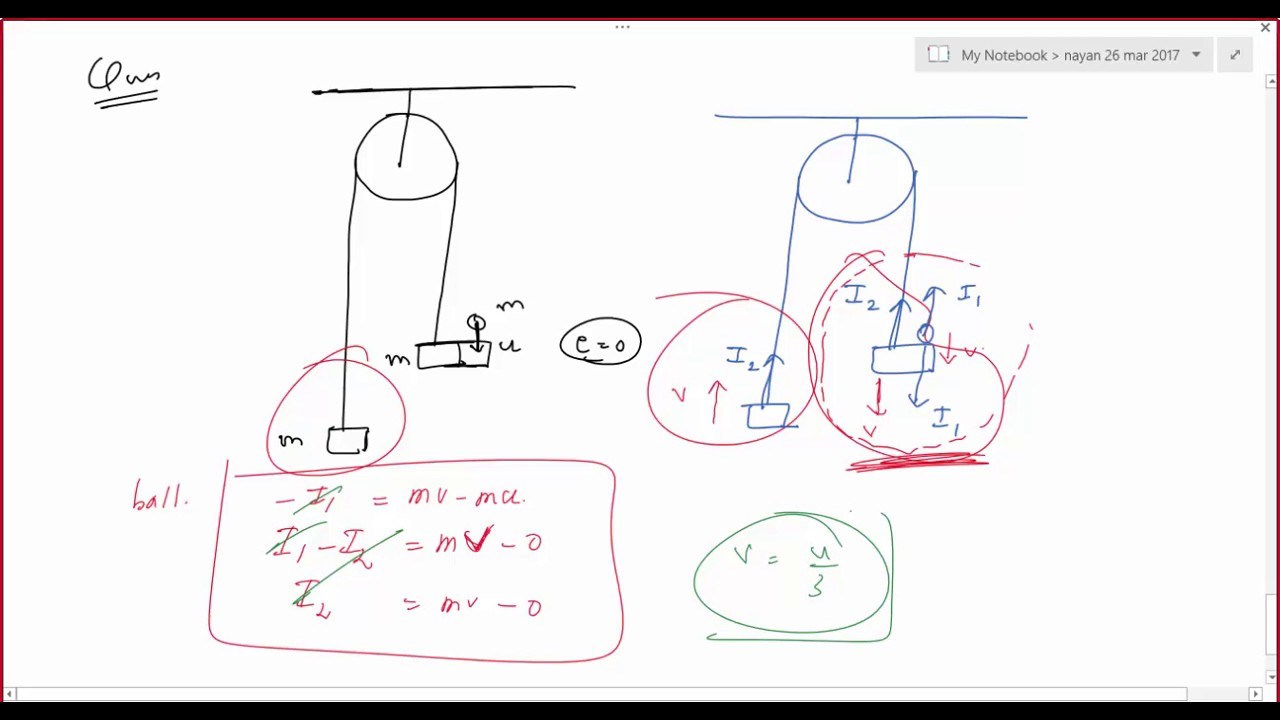 Ques
My Notebook > nayan 26 mar 2017
m
u
m
e=0
m
I₂
I₁
v
I₂
v
v
I₁
ball.
-I₁ = mv - mu.
I₁ - I₂ = mv - 0
I₂ = mv - 0
v = u/3